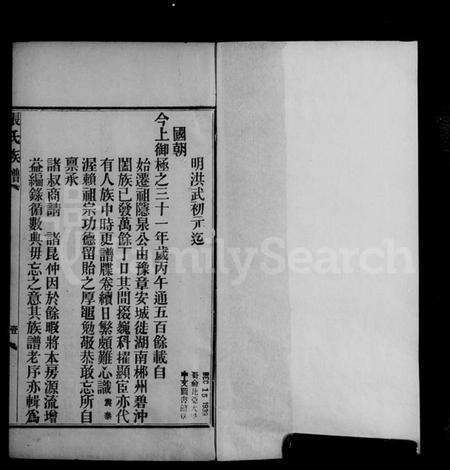 明洪武初元迄
國朝
今上御極之三十一年歲丙午通五百餘載自
始遷祖隱泉公由豫章安城徙湖南郴州碧沖
闔族已發萬餘丁口其間掇巍科擢顯宦亦代
有人族中時更譜牒卷續日繁頗難心識 泰
渥賴祖宗功德留貽之厚黽勉敬恭敢忘所自
禀承
諸叔商請 諸昆仲因於餘暇將本房源流增
益編錄循數典毋忘之意其族譜老序亦輯爲
張氏族譜
壹
DEC 15 1939
FamilySearch